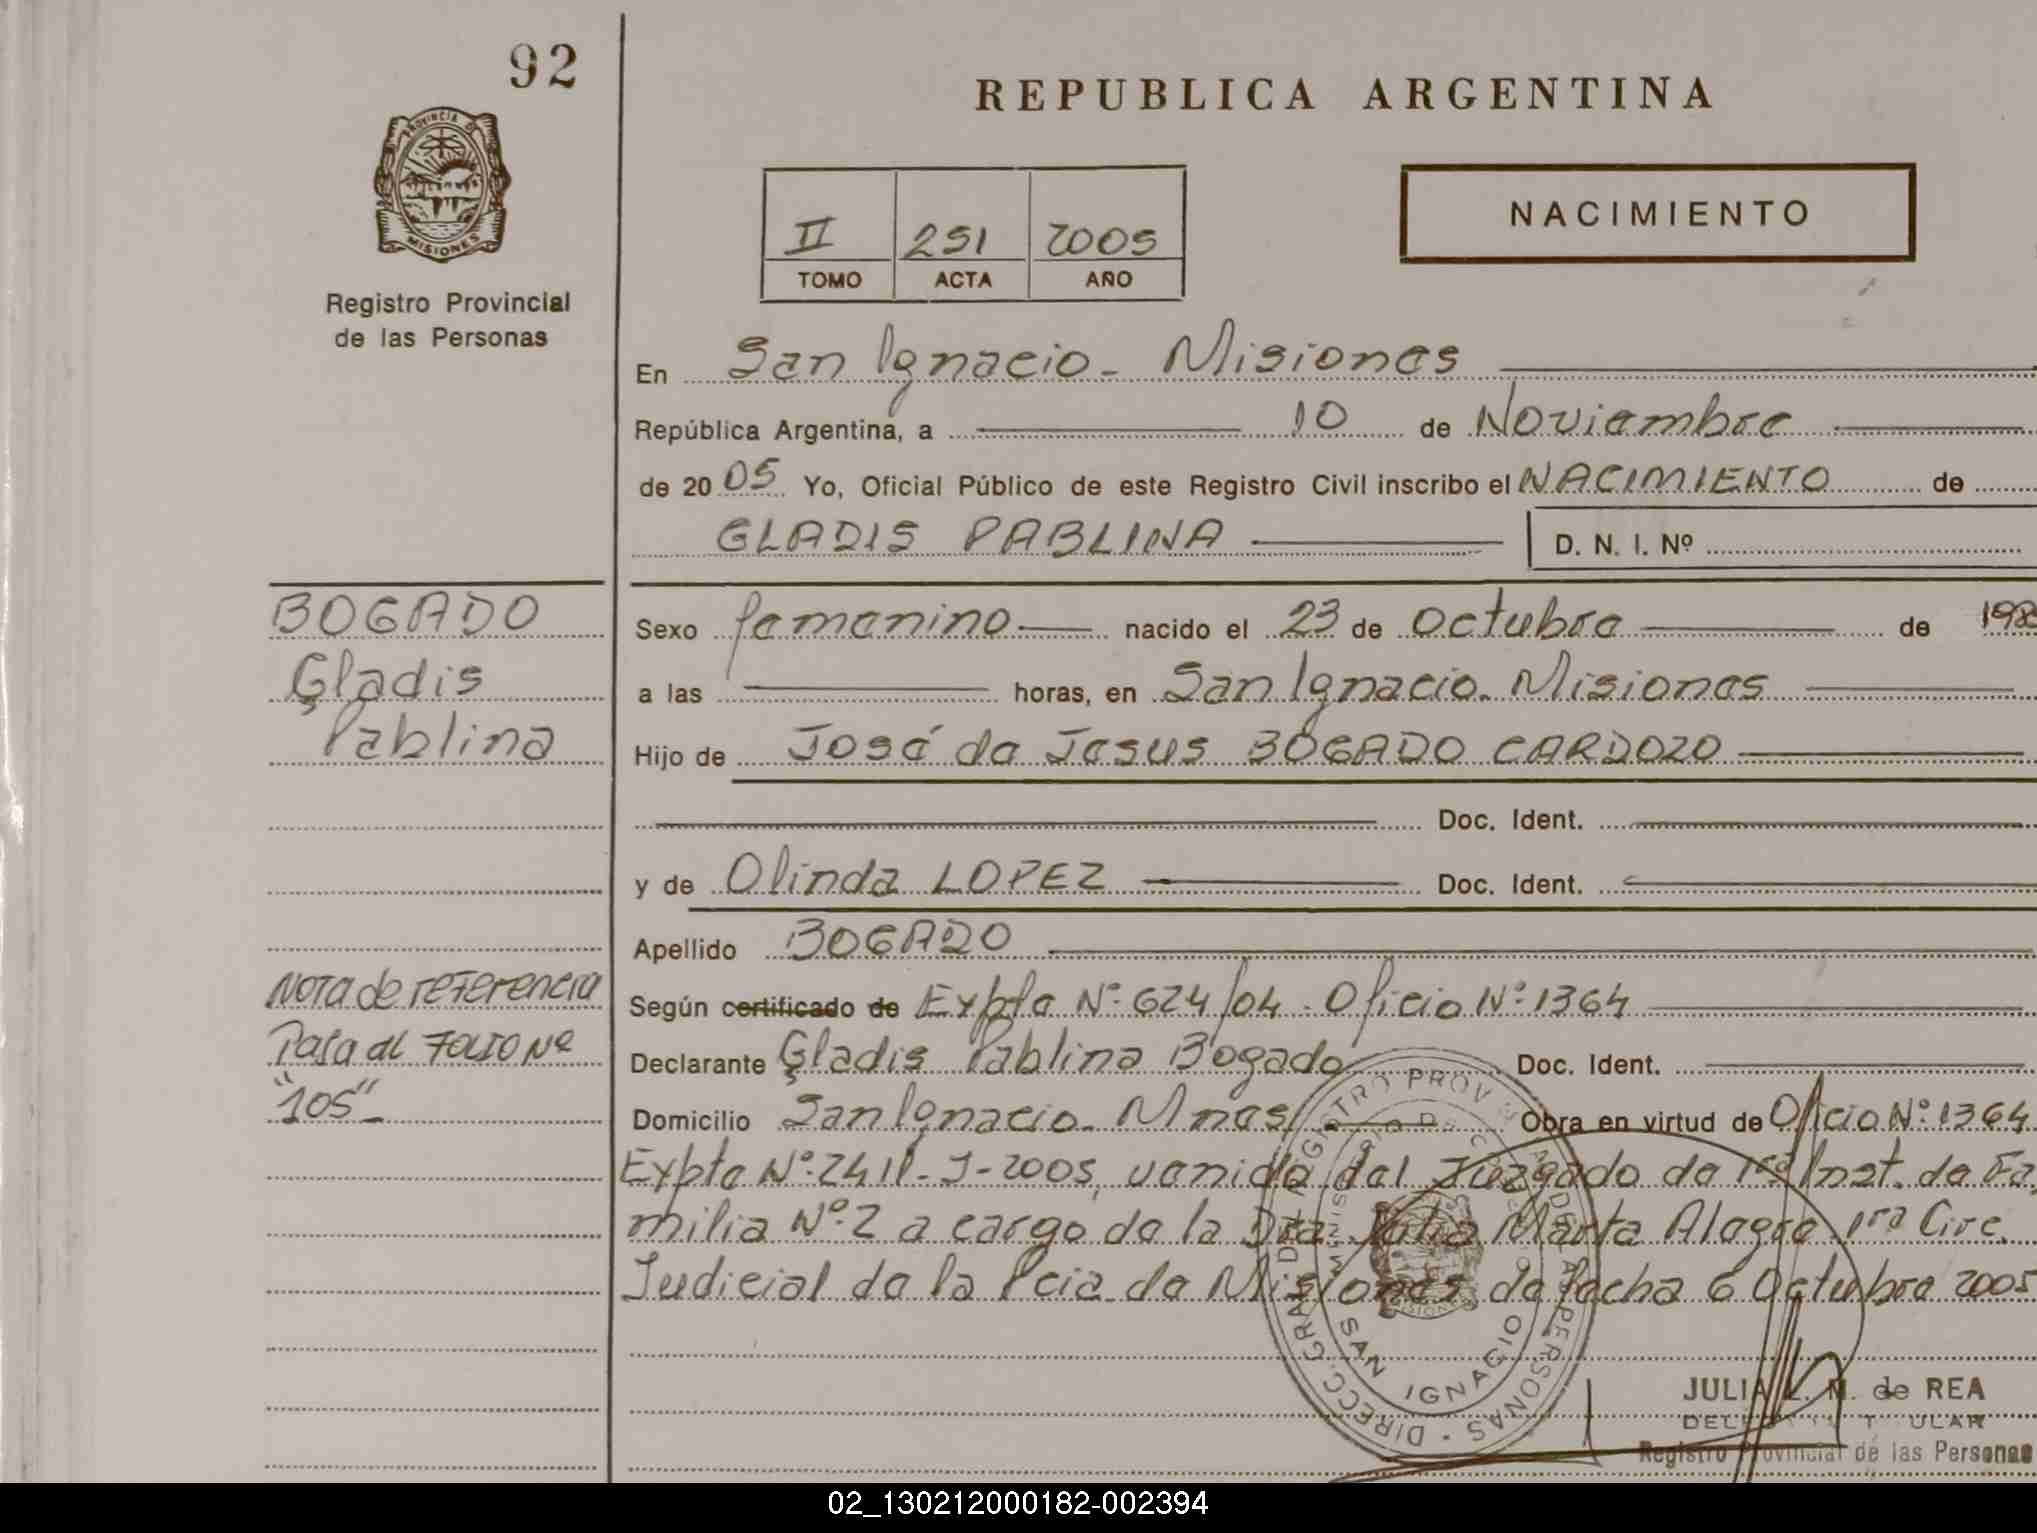 92
REPUBLICA ARGENTINA
PROVINCIA D
MISIONES
Registro Provincial
de las Personas
II 251 2005
TOMO ACTA AÑO
NACIMIENTO
En San Ignacio - Misiones
República Argentina, a 10 de Noviembre
de 20 05 Yo, Oficial Público de este Registro Civil inscribo el NACIMIENTO de
GLADIS PABLINA D. N. I. Nº
BOGADO
Gladis
Pablina
Sexo femenino nacido el 23 de Octubre de 198
a las horas, en San Ignacio - Misiones
Hijo de José de Jesus BOGADO CARDOZO
Doc. Ident.
y de Olinda LOPEZ Doc. Ident.
Apellido BOGADO
Nota de referencia
Pasa al FOLIO Nº
"105"-
Según certificado de Expte Nº 624/04 - Oficio Nº 1364
Declarante Gladis Pablina Bogado Doc. Ident.
Domicilio San Ignacio - Mnes Obra en virtud de Oficio Nº 1364
Expte Nº 2411 - J - 2005, venido del Juzgado de 1ra Inst. de Fa
milia Nº 2 a cargo de la Dra Julia Marta Alegre 1ra Circ.
Judicial de la Pcia de Misiones de fecha 6 Octubre 2005
DIRECC. GRAL. REGISTRO PROV DE LAS PERSONAS
SAN IGNACIO
JULIA L. M. de REA
Registro Provincial de las Personas
02_130212000182-002394